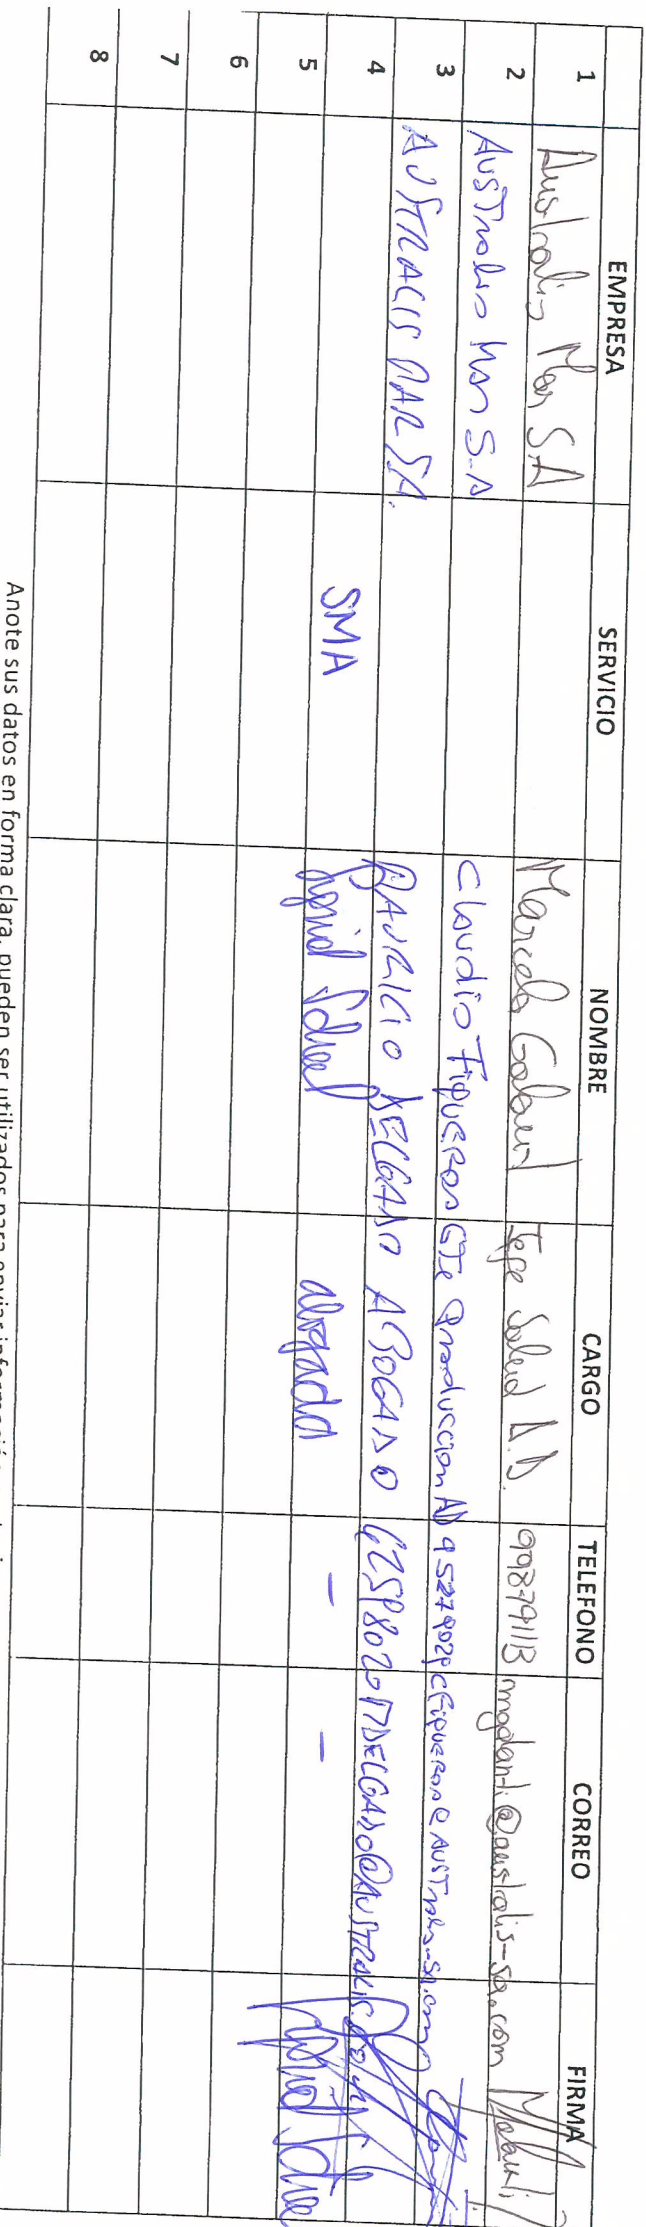 EMPRESA SERVICIO NOMBRE CARGO TELEFONO CORREO FIRMA
1 Australis Mar SA Marcelo Jefe Salud A.D. 99879113 mgalanti@australis-sa.com
2 AUSTRALIS MAR S.A Claudio Figueroa GTe Produccion AD cfigueroa@australis-sa.com
3 AUSTRALIS MAR SA. MAURICIO DELGADO ABOGADO MDELGADO@AUSTRALIS-SA.COM
4 SMA abogada - -
5
6
7
8
Anote sus datos en forma clara, pueden ser utilizados para enviar